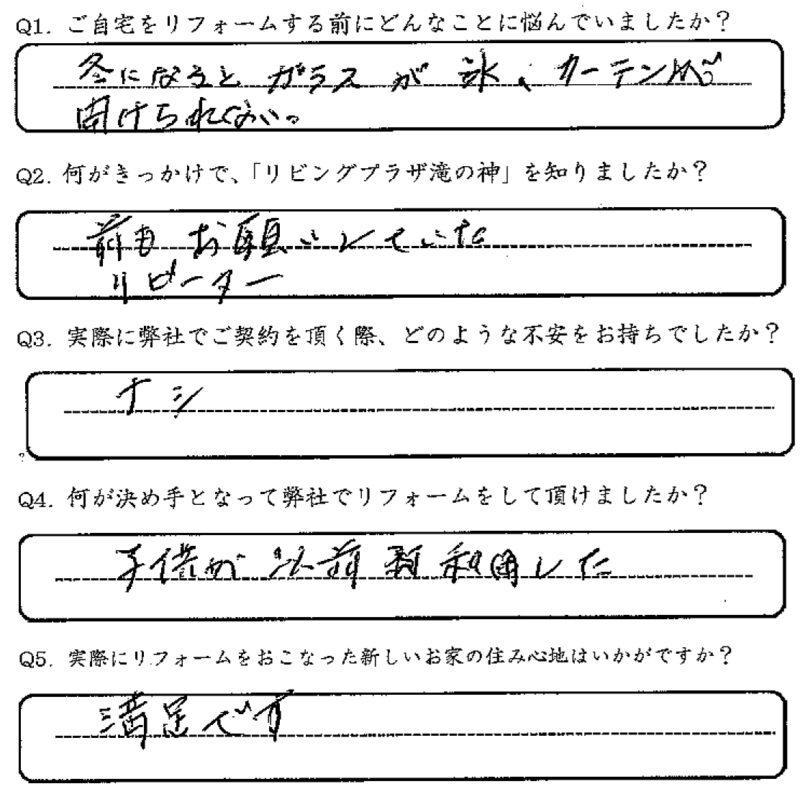 Q1. ご自宅をリフォームする前にどんなことに悩んでいましたか?
冬になると ガラスが 氷、カーテンが
開けられない。
Q2. 何がきっかけで、「リビングプラザ滝の神」を知りましたか?
前も お願いしていた
リピーター
Q3. 実際に弊社でご契約を頂く際、どのような不安をお持ちでしたか?
ナシ
Q4. 何が決め手となって弊社でリフォームをして頂けましたか?
子供が 以前 利用した
Q5. 実際にリフォームをおこなった新しいお家の住み心地はいかがですか?
満足です